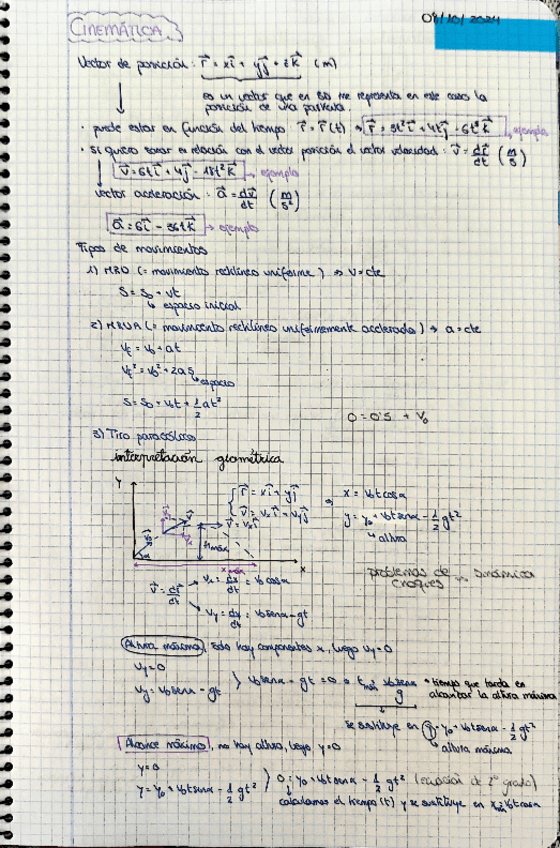 CINEMÁTICA
09/10/2024
Vector de posición: r⃗ = xi⃗ + yj⃗ + zk⃗ (m)
es un vector que en 3D me representa en este caso la
posición de una partícula.
· puede estar en función del tiempo r⃗ = r⃗(t) ⇒ r⃗ = 3t²i⃗ + 4tj⃗ - 6t³k⃗ → ejemplo
· si quiero sacar en relación con el vector posición el vector velocidad: v⃗ = dr⃗/dt (m/s)
v⃗ = 6ti⃗ + 4j⃗ - 18t²k⃗ → ejemplo
vector aceleración: a⃗ = dv⃗/dt (m/s²)
a⃗ = 6i⃗ - 36tk⃗ → ejemplo
Tipos de movimientos
1) MRU (= movimiento rectilíneo uniforme) ⇒ v = cte
S = S₀ + vt
↳ espacio inicial
2) MRUA (= movimiento rectilíneo uniformemente acelerado) → a = cte
vf = v₀ + at
vf² = v₀² + 2as
↳ espacio
S = S₀ + v₀t + 1/2 at²
0 = 0's + V₀
3) Tiro parabólico
interpretación geométrica
Y
{ r⃗ = xi⃗ + yj⃗
v⃗ = vₓi⃗ + vᵧj⃗
⇒ x = v₀t cosα
y = y₀ + v₀t senα - 1/2 gt²
↳ altura
v⃗ = vₓi⃗
Hmáx
α
x máx
X
problemas de croques ... dinámica
v⃗ = dr⃗/dt
vₓ = dx/dt = v₀ cosα
vᵧ = dy/dt = v₀ senα - gt
Altura máxima, solo hay componentes x, luego vᵧ = 0
vᵧ = 0
vᵧ = v₀ senα - gt
} v₀ senα - gt = 0 ⇒ tmáx = v₀ senα/g
• tiempo que tarda en
alcanzar la altura máxima
se sustituye en y = y₀ + v₀t senα - 1/2 gt²
↳ altura máxima
Alcance máximo, no hay altura, luego y = 0
y = 0
y = y₀ + v₀t senα - 1/2 gt²
} 0 = y₀ + v₀t senα - 1/2 gt² (ecuación de 2º grado)
calculamos el tiempo (t) y se sustituye en xmáx = v₀t cosα